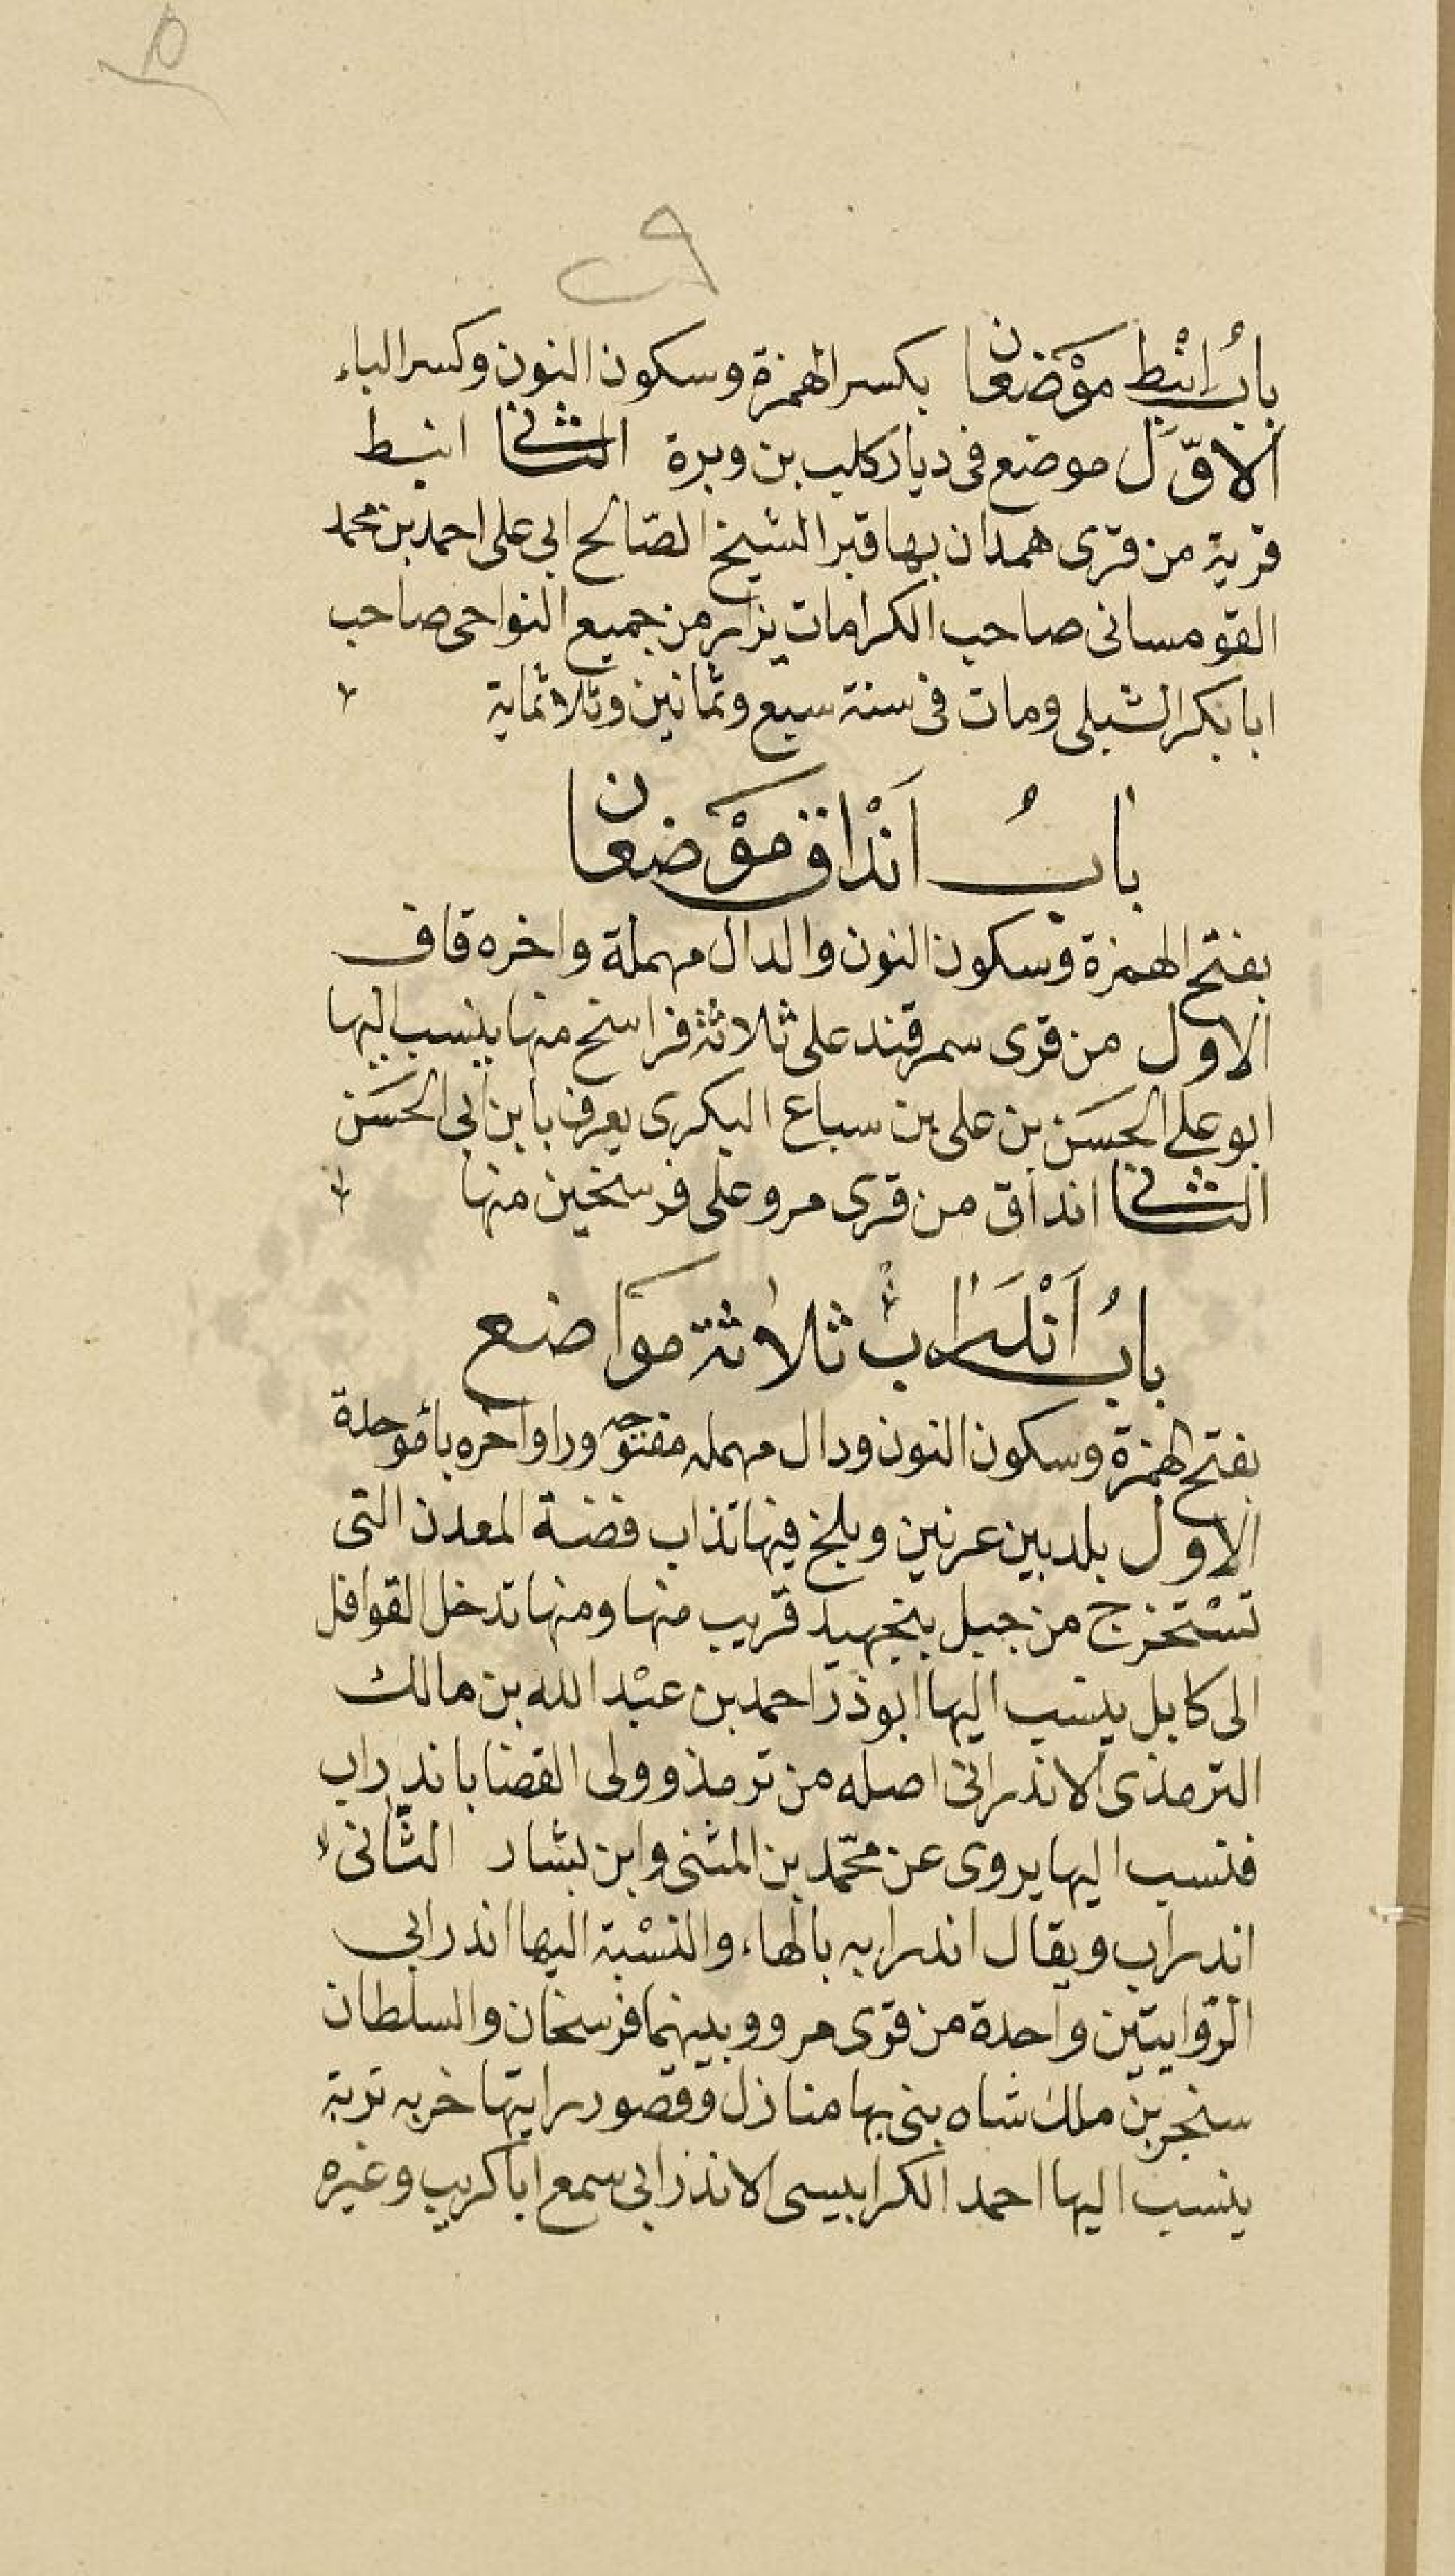 بابُ اِنْبِط مَوْضعان بكسر الهمزة وسكون النون وكسر الباء
الاوّل موضع فى ديار كلب بن وبرة الثانى انبط
قرية من قرى همدان بها قبر الشيخ الصّالح ابى على احمد بن محمد
القومسانى صاحب الكرامات يزار من جميع النواحى صاحب
ابا بكر الشبلى ومات فى سنة سبع وثمانين وثلاثماية
بابُ اَنْدَاق مَوْضعان
بفتح الهمزة وسكون النون والدال مهملة واخره قاف
الاول من قرى سمرقند على ثلاثة فراسخ منها ينسب اليها
ابو على الحسَن بن على بن سباع البكرى يعرف بابن ابى الحسَن
الثانى انداق من قرى مرو على فرسخين منها
بابُ اَنْدَراب ثلاثة مواضع
بفتح الهمزة وسكون النون ودال مهمله مفتوحه ورا واخره باء موحدة
الاول بلد بين عرنين وبلخ فيها تذاب فضة المعدن التى
تسْتخرج من جبل بنجهيد قريب منها ومنها تدخل القوافل
الى كابل ينسب اليها ابو ذرّ احمد بن عبْد الله بن مالك
الترمذى الاندرانى اصله من ترمذ وولى القضا باندراب
فنسب اليها يروى عن محمّد بن المثنى وابن بشار الثّانى
اندراب ويقال اندرابه بالهاء والنسْبة اليها اندرابى
الرّوايتين واحدة من قرى مرو وبينهما فرسخان والسلطان
سنجر بن ملك شاه بنى بها منازل وقصور رايتها خربه تربة
ينسب اليها احمد الكرابيسى الاندرابى سمع ابا كريب وغيره